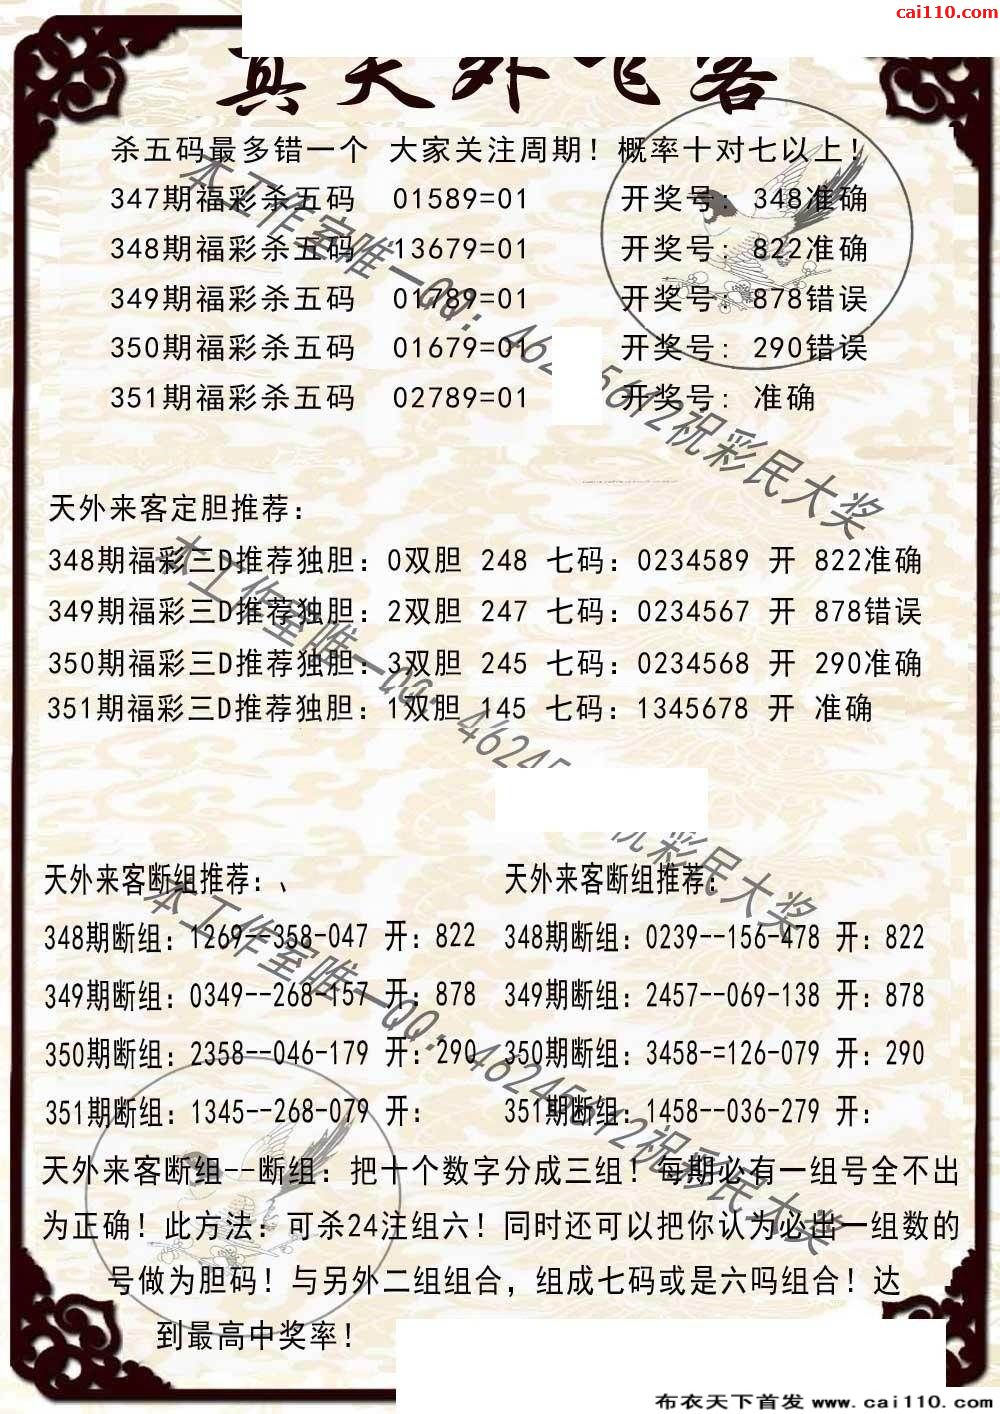 cai110.com
真天外飞客
杀五码最多错一个 大家关注周期！概率十对七以上！
347期福彩杀五码 01589=01 开奖号: 348准确
348期福彩杀五码 13679=01 开奖号: 822准确
349期福彩杀五码 01789=01 开奖号: 878错误
350期福彩杀五码 01679=01 开奖号: 290错误
351期福彩杀五码 02789=01 开奖号: 准确
天外来客定胆推荐:
348期福彩三D推荐独胆: 0双胆 248 七码: 0234589 开 822准确
349期福彩三D推荐独胆: 2双胆 247 七码: 0234567 开 878错误
350期福彩三D推荐独胆: 3双胆 245 七码: 0234568 开 290准确
351期福彩三D推荐独胆: 1双胆 145 七码: 1345678 开 准确
天外来客断组推荐:、
348期断组: 1269--358-047 开: 822
349期断组: 0349--268-157 开: 878
350期断组: 2358--046-179 开: 290
351期断组: 1345--268-079 开:
天外来客断组推荐:
348期断组: 0239--156-478 开: 822
349期断组: 2457--069-138 开: 878
350期断组: 3458-=126-079 开: 290
351期断组: 1458--036-279 开:
天外来客断组--断组: 把十个数字分成三组！每期必有一组号全不出
为正确！此方法: 可杀24注组六！同时还可以把你认为必出一组数的
号做为胆码！与另外二组组合，组成七码或是六吗组合！达
到最高中奖率！
本工作室唯一QQ: 462 5612祝彩民大奖
本工作室唯一QQ: 46245 祝彩民大奖
本工作室唯一QQ: 46245612祝彩民大奖
布衣天下首发 www.cai110.com